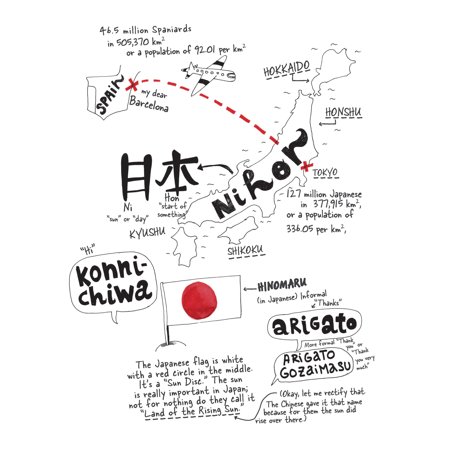 46.5 million Spaniards
in 505,370 km²
or a population of 92.01 per km²
SPAIN
my dear
Barcelona
HOKKAIDO
HONSHU
Nihon
TOKYO
日本
Ni
"sun" or "day"
Hon
"start of
something"
127 million Japanese
in 377,915 km²,
or a population of
336.05 per km²,
KYUSHU
SHIKOKU
"Hi"
KONNI-
CHIWA
HINOMARU
(in Japanese) Informal
"Thanks"
ARIGATO
More formal "Thank
you" or
"Thank
you very
much"
ARIGATO
GOZAIMASU
The Japanese flag is white
with a red circle in the middle.
It's a "Sun Disc." The sun
is really important in Japan;
not for nothing do they call it
"Land of the Rising Sun."
(Okay, let me rectify that
The Chinese gave it that name
because for them the sun did
rise over there)